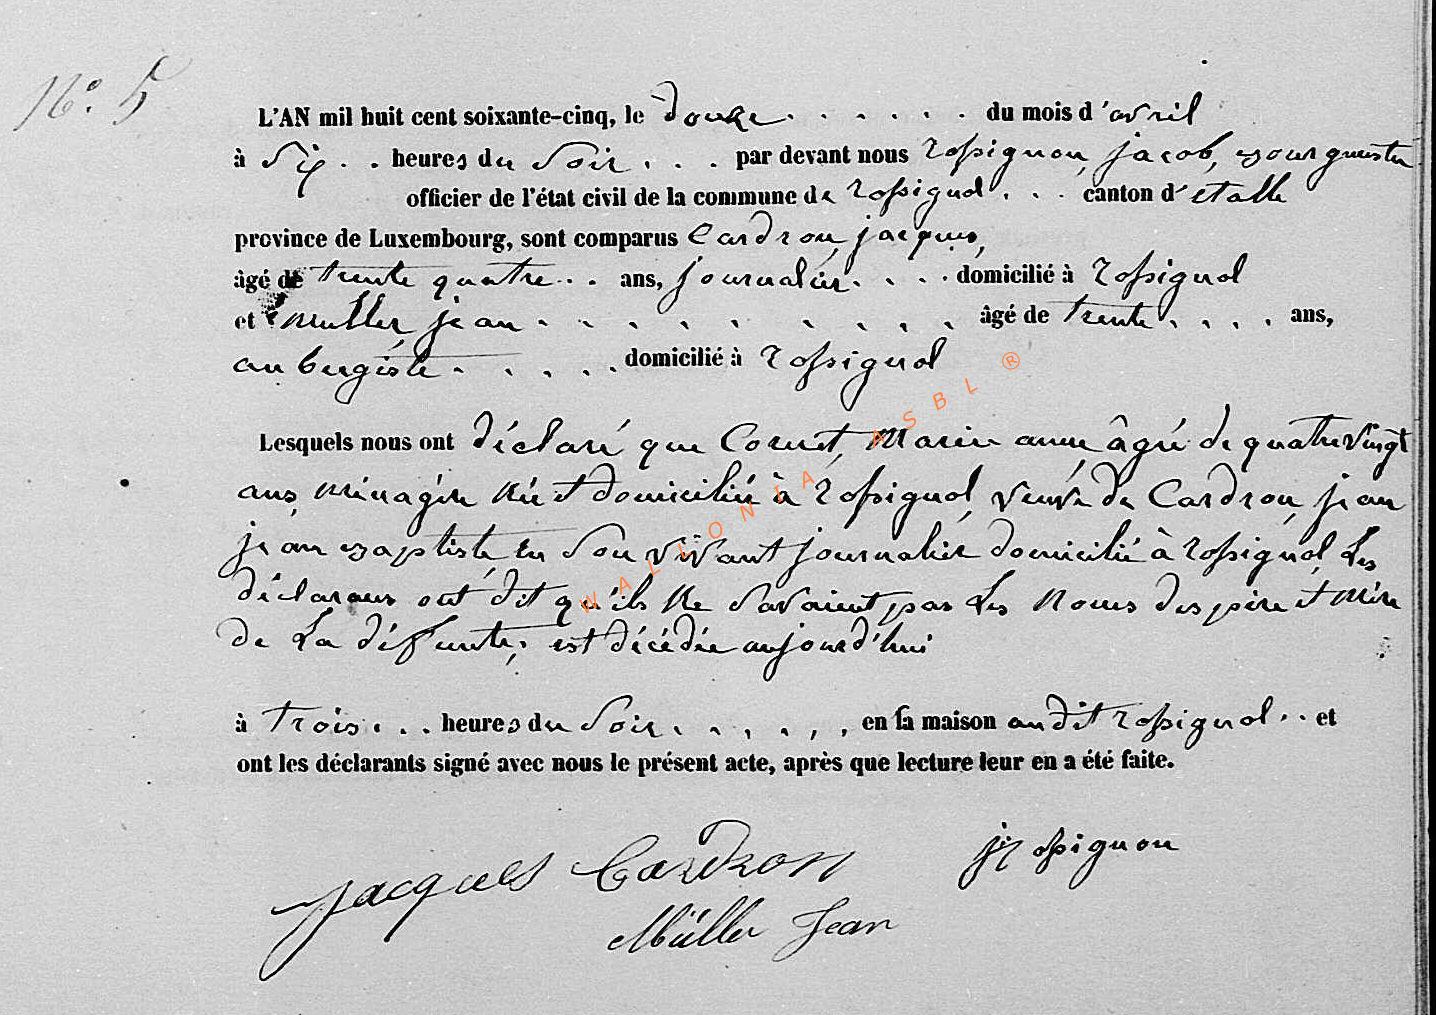 N.° 5
L'AN mil huit cent soixante-cinq, le douze . . . . . . du mois d'avril
à six . . heures du soir . . . par devant nous rossignon, jacob, bourguestre
officier de l'état civil de la commune de rossignol . . . canton d'étalle
province de Luxembourg, sont comparus Cardron, jacques,
âgé de trente quatre . . . ans, journalier . . . . domicilié à rossignol
et muller jean . . . . . . . . . âgé de trente . . . . ans,
aubergiste . . . . . domicilié à rossignol
Lesquels nous ont déclaré que Cornet, marie anne âgée de quatre vingt
ans, ménagère née et domiciliée à rossignol, veuve de Cardron, jean
jean baptiste, en son vivant journalier domicilié à rossignol, Les
déclarans ont dit qu'ils ne savaient pas Les noms des père et mère
de La défunte, est décédée aujourd'hui
à trois . . . heures du soir . . . . . . en sa maison audit rossignol . . et
ont les déclarants signé avec nous le présent acte, après que lecture leur en a été faite.
jj rossignon
Jacques Cardron
Müller Jean
WALLONIA ASBL ®